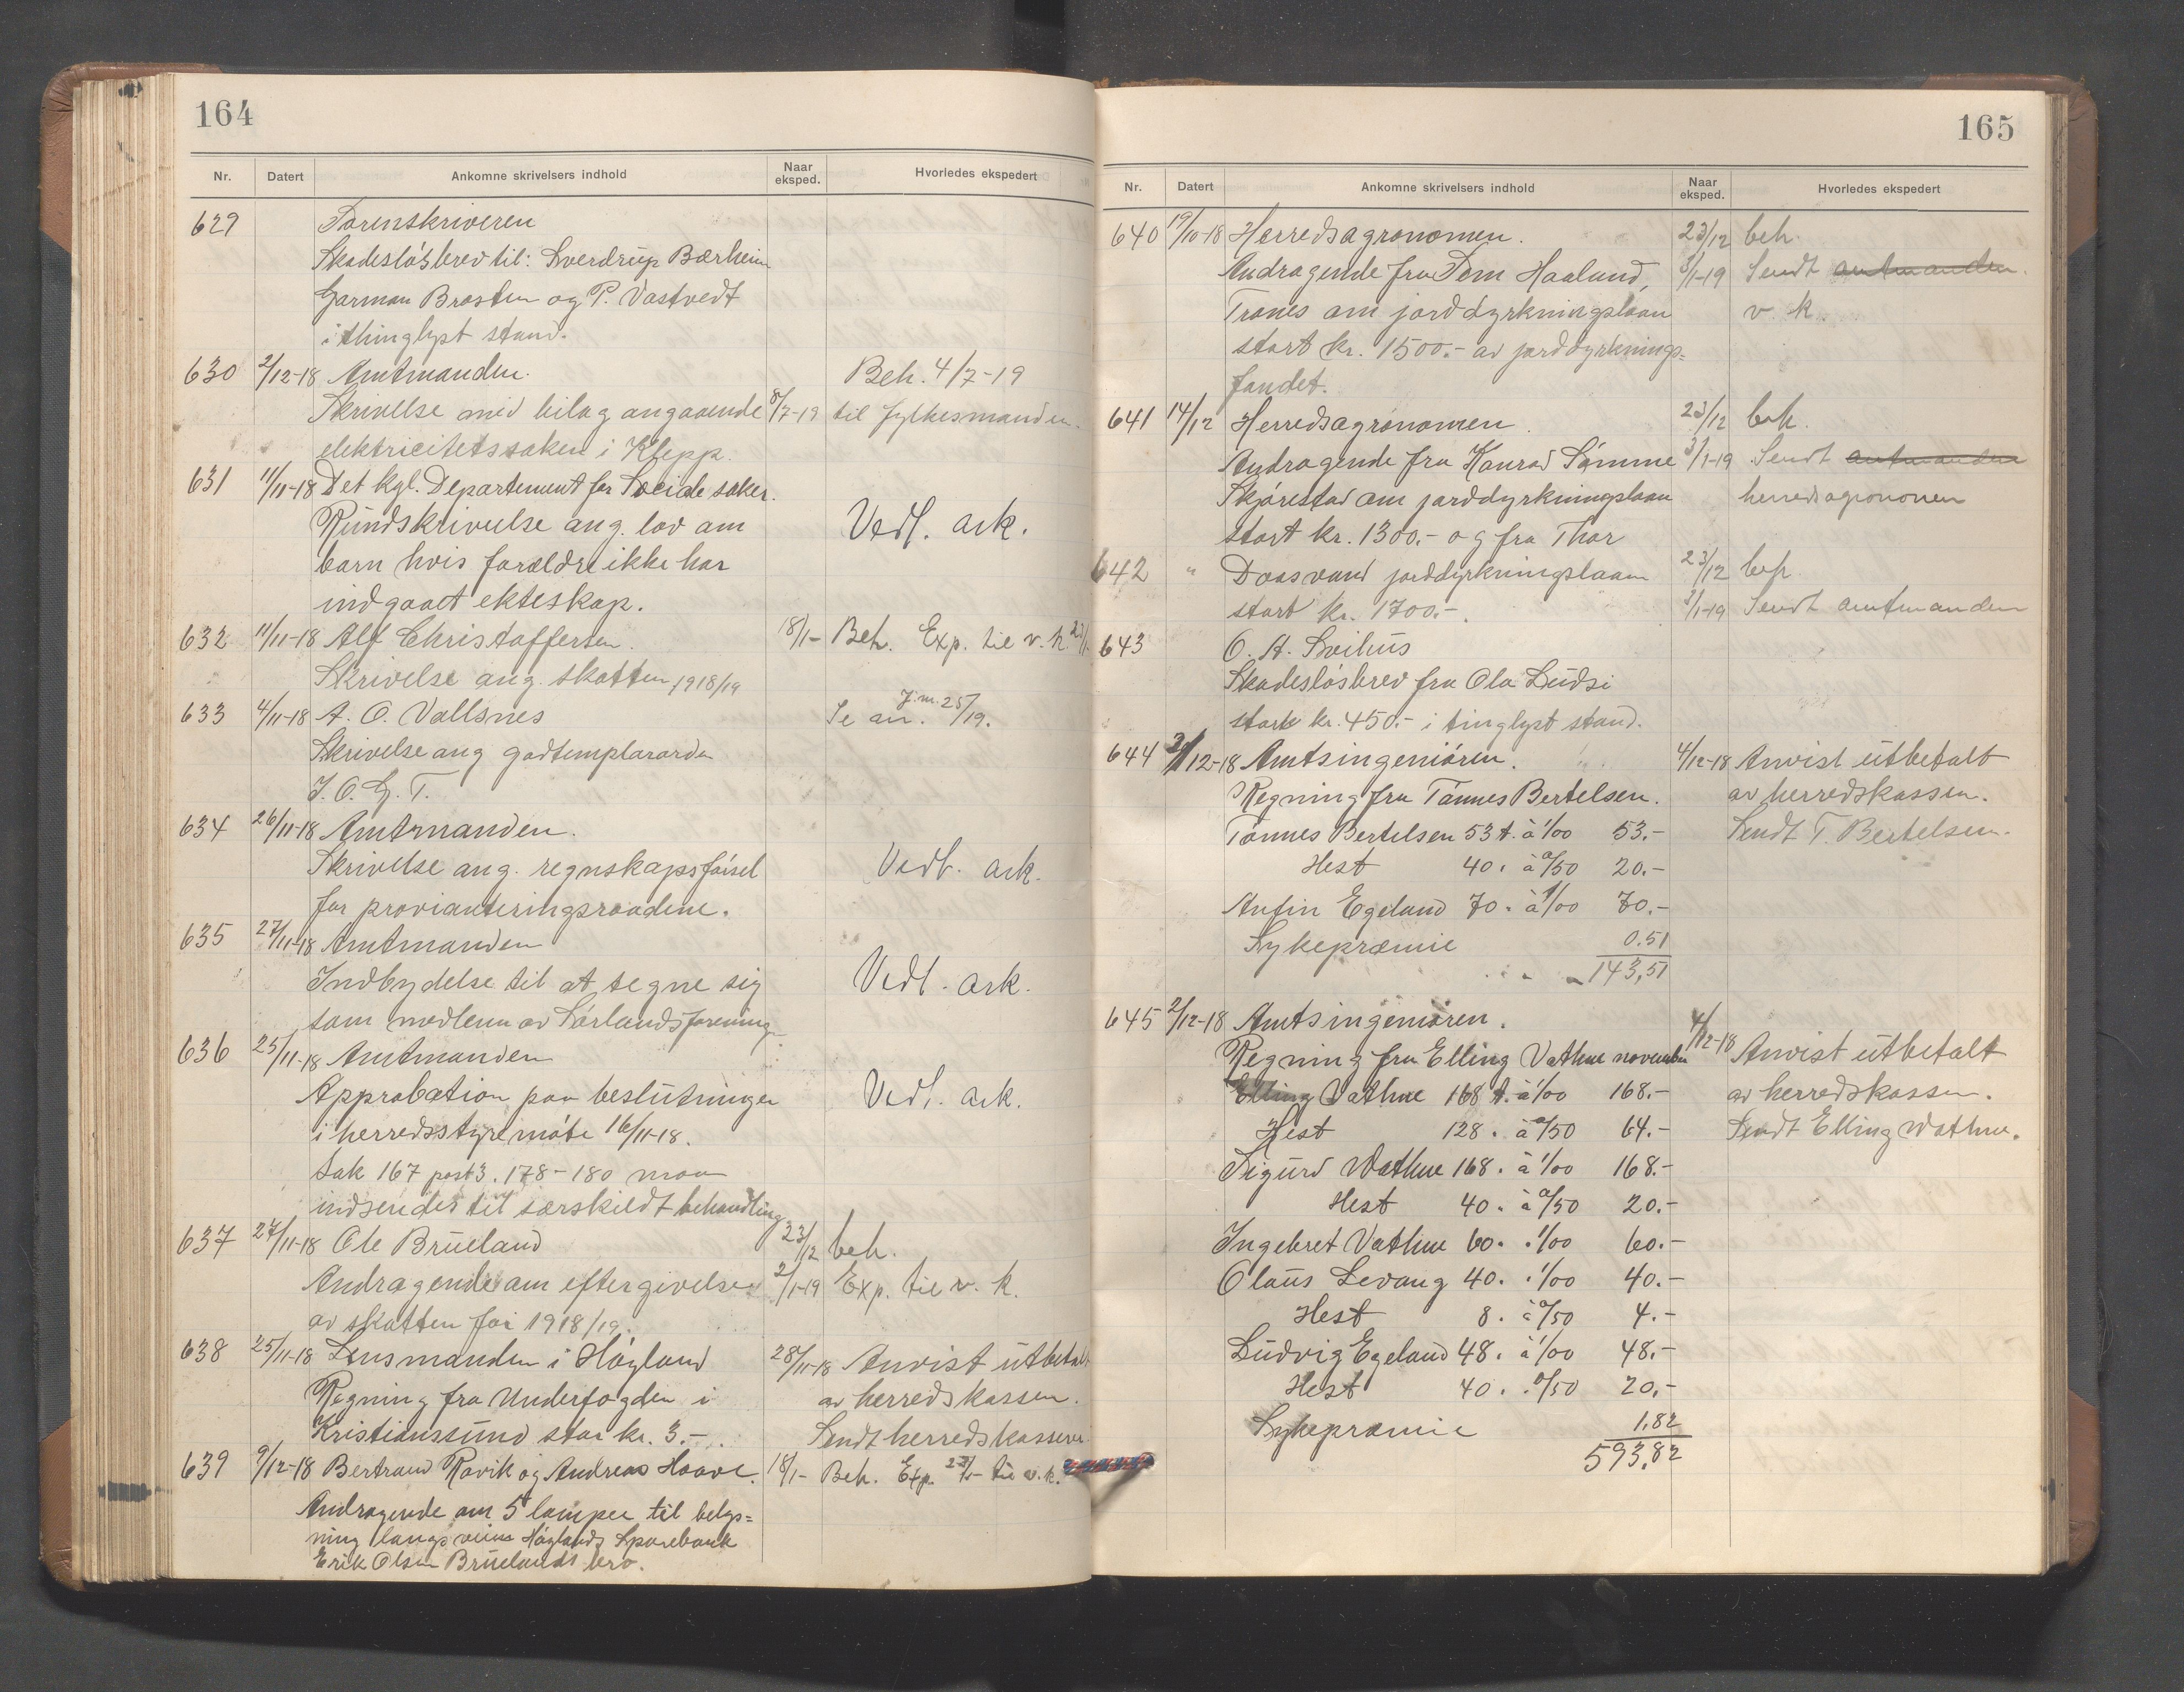 164
Nr. Datert Ankomne skrivelsers indhold Naar eksped. Hvorledes ekspedert
629 Sorenskriveren
Skadesløsbrev til: Sverdrup Bærheim
Garman Brasten og P. Vastvedt
i thinglyst stand.
630 2/12-18 Amtmanden. Beh. 4/7-19
Skrivelse med bilag angaaende 8/7-19 til fylkesmanden.
elektricitetssaken i Klepp.
631 11/11-18 Det kgl. Departement for Sociale saker.
Rundskrivelse ang. lov om Vedl. ark.
barn hvis forældre ikke har
indgaaet ekteskap.
632 11/11-18 Alf Christoffersen. 18/1- Beh. Exp. til v. k.
Skrivelse ang. skatten 1918/19
633 4/11-18 A. O. Vallsnes Se an. J.nr. 25/19.
Skrivelse ang godtemplarorden
I. O. G. T.
634 26/11-18 Amtmanden.
Skrivelse ang. regnskapsførsel Vedl. ark.
for provianteringsraadene.
635 27/11-18 Amtmanden
Indbydelse til at tegne sig Vedl. ark.
som medlem av Sørlandsforening
636 25/11-18 Amtmanden
Approbation paa beslutninger Vedl. ark.
i herredsstyremøte 16/11-18.
Sak 167 post 3. 178-180 maa
indsendes til særskildt behandling
637 27/11-18 Ole Brueland 23/12 beh.
Andragende om eftergivelse 2/1-19 Exp. til v. k.
av skatten for 1918/19.
638 25/11-18 Lensmanden i Høyland 28/11-18 Anvist utbetalt
Regning fra Underfogden i av herredskassen.
Kristianssund stor kr. 3.- Sendt herredskasserer
639 9/12-18 Bertrand Ravik og Andreas Haave. 18/1- Beh. Exp. 23/1- til v. k.
Andragende om 5 lamper til belys=
ning langs veien Høylands Sparebank
Erik Olsen Bruelands bro.
165
Nr. Datert Ankomne skrivelsers indhold Naar eksped. Hvorledes ekspedert
640 19/10-18 Herredsagronomen. 23/12 beh.
Andragende fra Tom Haaland, 3/1-19 Sendt amtmanden.
Trones om jorddyrkningslaan v. k.
stort kr. 1500.- av jorddyrknings=
fondet.
641 14/12 Herredsagronomen. 23/12 beh.
Andragende fra Konrad Sømme 3/1-19 Sendt amtmanden
Skjørestad om jorddyrkningslaan herredsagronomen
stort kr. 1300.- og fra Thor
642 " Daasvand jorddyrkningslaan 23/12 beh.
stort kr. 1700.-. 3/1-19 Sendt amtmanden
643 O. A. Svihus
Skadesløsbrev fra Ola Ludsi
stort kr. 450.- i tinglyst stand.
644 2/12-18 Amtsingeniøren. 4/12-18 Anvist utbetalt
Regning fra Tønnes Bertelsen. av herredskassen.
Tønnes Bertelsen 53 t. à 1/00 53.- Sendt T. Bertelsen.
Hest 40. à 0/50 20.-
Anfin Egeland 70. à 1/00 70.-
Sykepræmie 0.51
143,51
645 2/12-18 Amtsingeniøren.
Regning fra Elling Vathne november 4/12-18 Anvist utbetalt
Elling Vathne 168 t. à 1/00 168.- av herredskassen.
Hest 128. à 0/50 64.- Sendt Elling Wathne.
Sigurd Wathne 168. à 1/00 168.-
Hest 40. à 0/50 20.-
Ingebret Vathne 60. . 1/00 60.-
Olaus Levang 40. . 1/00 40.-
Hest 8. à 0/50 4.-
Ludvig Egeland 48. à 1/00 48.-
Hest 40. . 0/50 20.-
Sykepræmie 1.82
593,82